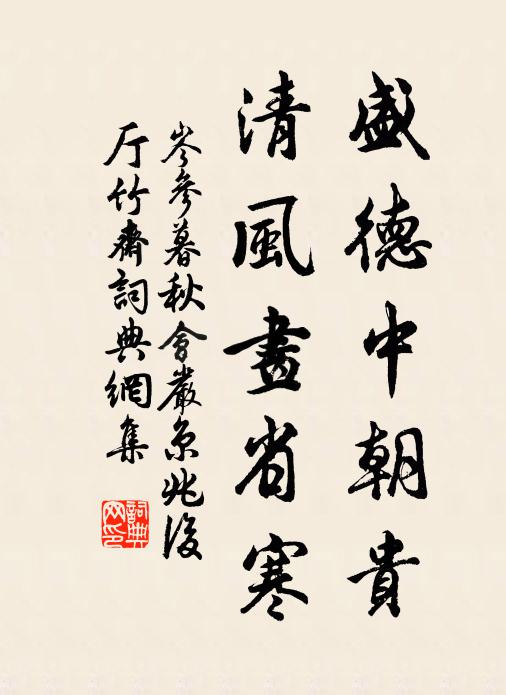 盛德中朝貴
清風畫省寒
岑參暮秋會嚴京兆後
厅竹齋詞典網集
詞典
网印